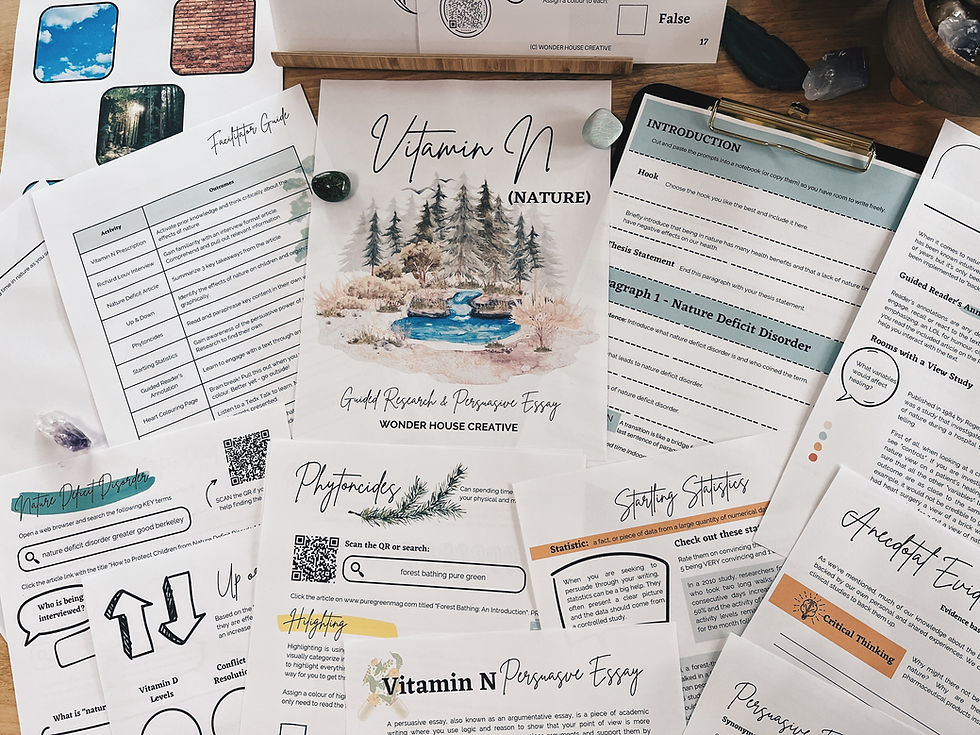 Assign a colour to each:
False
17
(C) WONDER HOUSE CREATIVE
Facilitator Guide
Activity
Outcomes
Vitamin N Prescription
Activate prior knowledge and think critically about the
effects of nature
Richard Louv Interview
Gain familiarity with an interview format article.
Comprehend and pull out relevant information
Nature Deficit Article
Summarize 3 key takeaways from the article.
Up & Down
Identify the effects of nature on children and
graphically.
Phytoncides
Read and paraphrase key content in their own
Startling Statistics
Gain awareness of the persuasive power of
Research to find their own.
Guided Reader's
Annotation
Learn to engage with a text through
Heart Colouring Page
Brain break: Pull this out when you
colour. Better yet, - go outside!
Listen to a Tedx Talk to learn
presented.
Vitamin N
(NATURE)
Guided Research & Persuasive Essay
WONDER HOUSE CREATIVE
INTRODUCTION
Cut and paste the prompts into a notebook (or copy them) so you have room to write freely.
Hook
Choose the hook you like the best and include it here.
Briefly introduce that being in nature has many health benefits and that a lack of nature
have negative effects on our health.
Thesis Statement
End this paragraph with your thesis statement.
ragraph 1 - Nature Deficit Disorder
tence: Introduce what nature deficit disorder is and who coined the term.
hat leads to nature deficit disorder.
s of nature deficit disorder.
A transition is like a bridge
last sentence of
When it comes to
has been known
Guided Reader's
Reader's annotations are any
engage, recall or react to the
emphasizing an LOL for humour,
you read the included article on the
help you interact with the text.
Rooms with a View Study
What variables
would affect
healing?
Published in 1984 by Roger
was a study that investigated
of nature during a hospital
telling.
First of all, when looking at a
see "controls". If you are
nature view on a patient's
sure that all the other
outcome are as close to the
example, it would not be credible
had heart surgery
Nature Deficit Disorder
Open a web browser and search the following KEY terms
nature deficit disorder greater good berkeley
SCAN the QR if
help finding the
Click the article link with the title "How to Protect Children from Nature Deficit
Who is being
interviewed?
What is "natur
Up or
Based on the
they are effe
an increase
Vitamin D
Levels
Conflict
Resolutio
Phytoncides
Can spending time
your physical and m
Scan the QR or search:
forest bathing pure green
Click the article on www.puregreenmag.com titled "Forest Bathing: An Introduction".
Hilighting
Highlighting is using
visually categorize
to highlight everything
way for you to get
Assign a colour of hig
only need to read the
Startling Statistics
Statistic: a fact, or piece of data from a large quantity of numerical da
When you are seeking to
persuade through your writing,
statistics can be a big help. They
often present a clear picture
and the data should come from
a controlled study.
Check out these sta
Rate them on convincing
5 being VERY convincing and
In a 2010 study, researchers
who took two long walks
consecutive days
50% and the activity
activity levels
for the month
Vitamin N Persuasive Essay
A persuasive essay, also known as an argumentative essay, is a piece of academic
writing where you use logic and reason to show that your point of view is more
Anecdotal Evid
Evidence ba
As we've mentioned, much of our knowledge about the
backed by our own personal and shared experiences.
clinical studies to back them up.
Critical Thinking
Why might there not be
nature? Why are
pharmaceutical products
Persuasive
Synonym